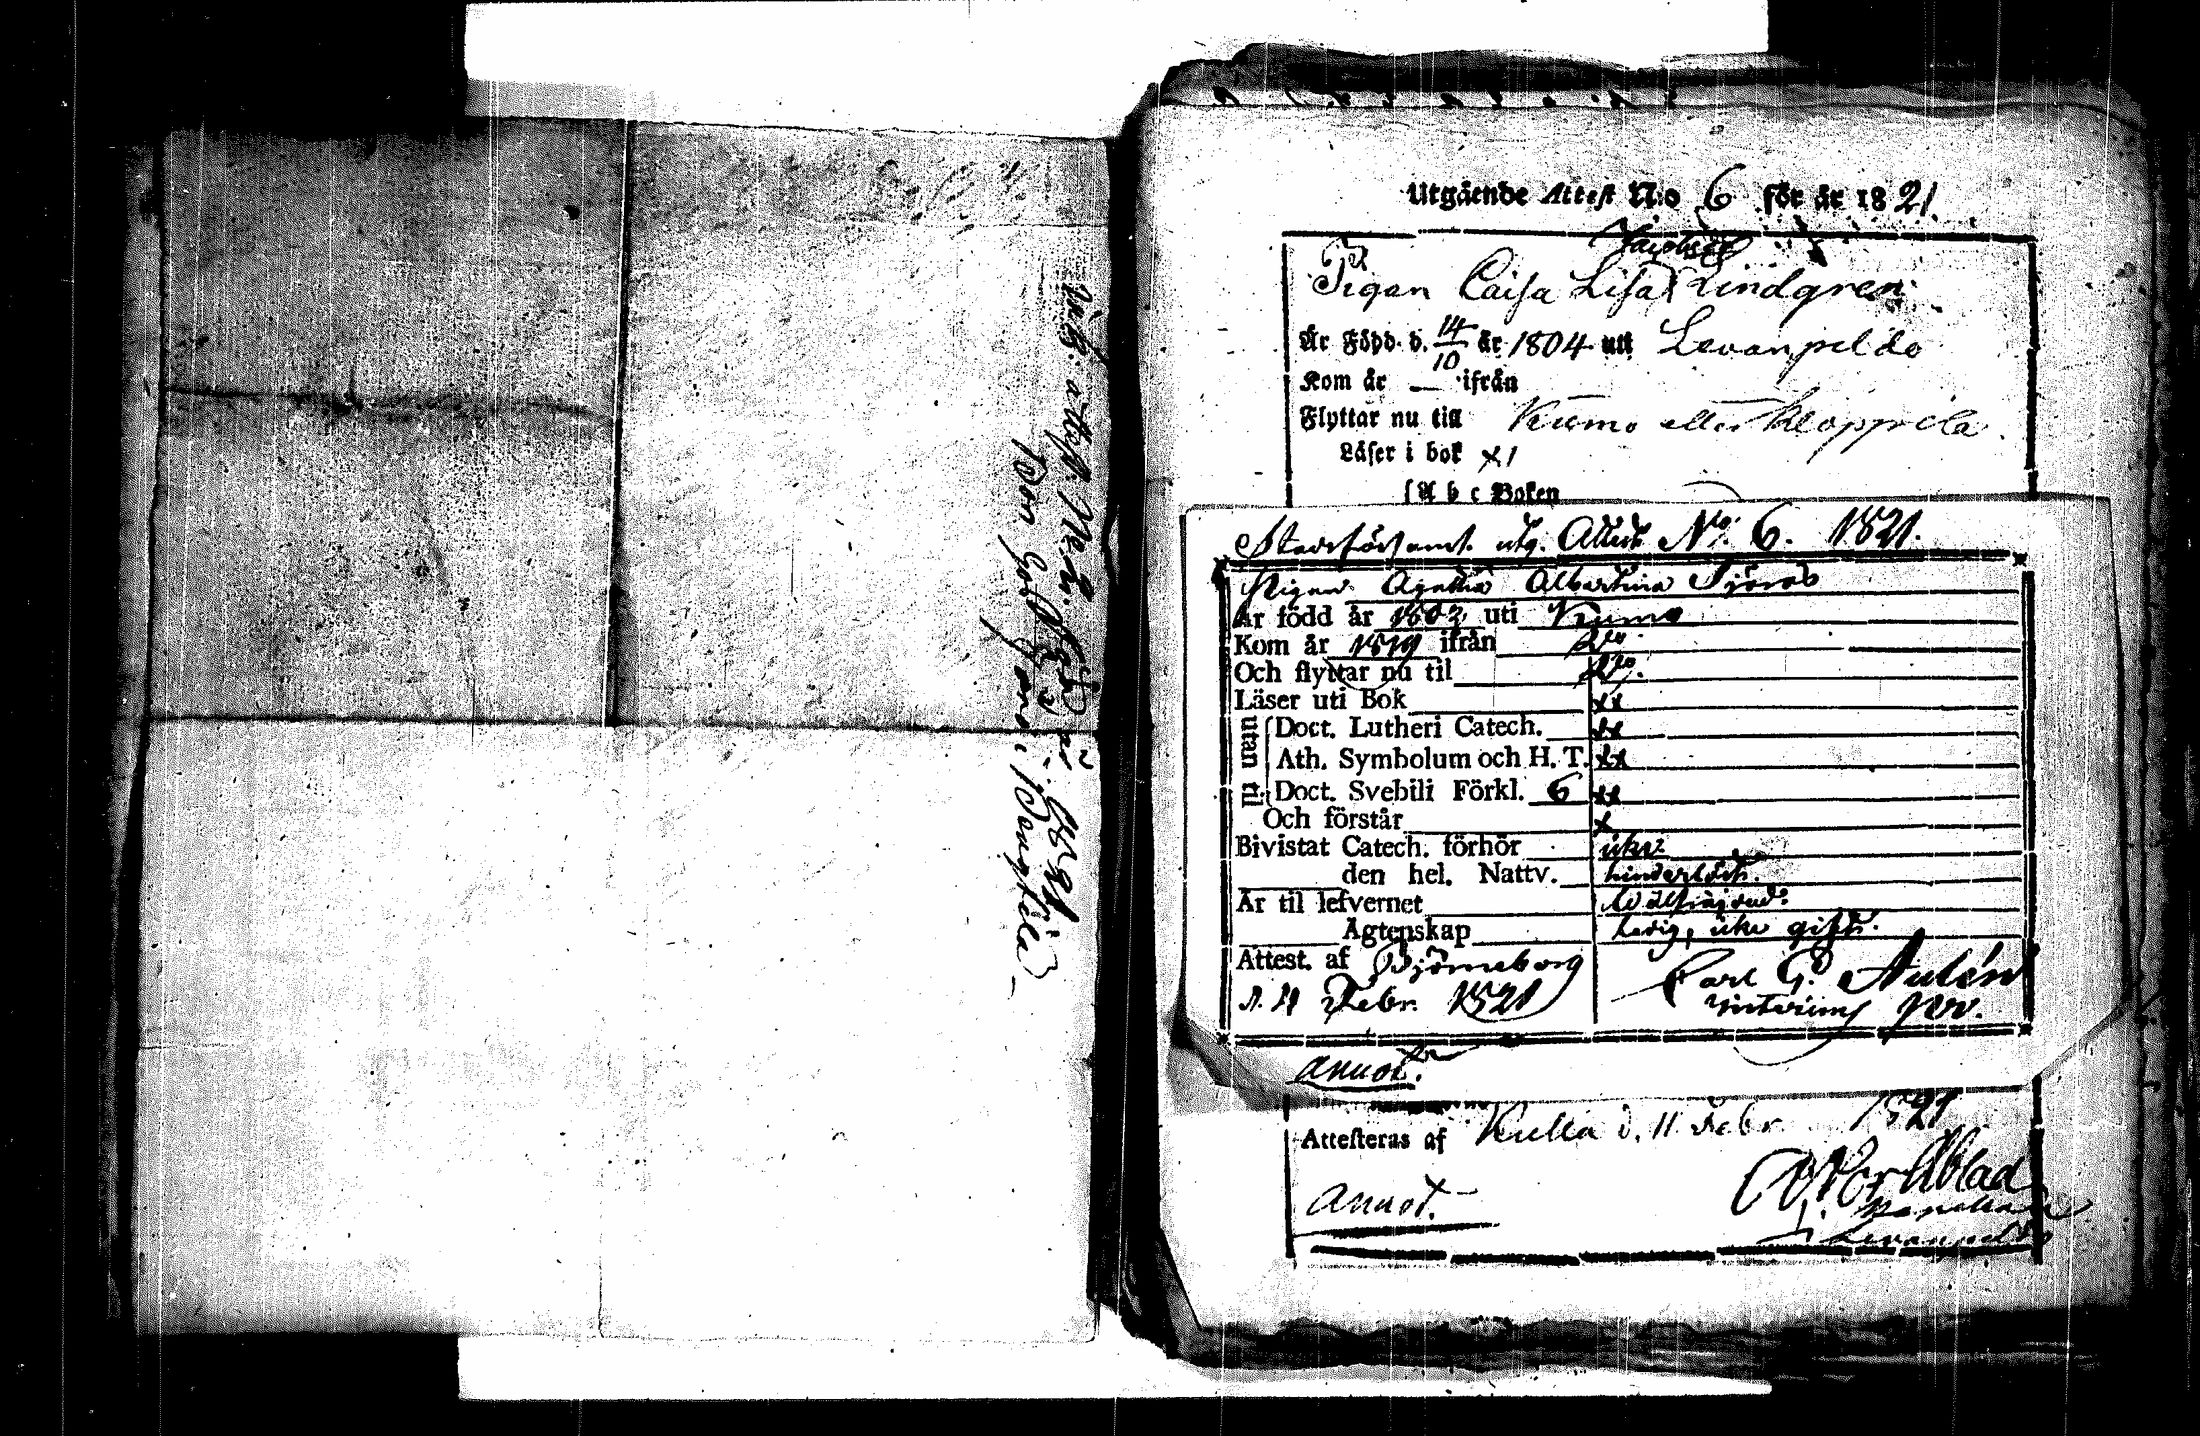 Utgående Attest N:o 6 för år 1821.
Pigan Caisa Lisa Lindgren
Är Född d. 14/10 år 1804 uti Levanpeldo
Kom år — ifrån
Flyttar nu till Kumo eller Kloppila
Läser i bok x1
A b c Boken
Stadsförsaml. utg. Attest No: 6. 1821.
Pigan Agatha Albertina Sjöroos
Är född år 1802 uti Kumo
Kom år 1819 ifrån Do.
Och flyttar nu til Do.
Läser uti Bok xx
utan til
Doct. Lutheri Catech. xx
Ath. Symbolum och H. T. xx
Doct. Svebili Förkl. 6 xx
Och förstår x
Bivistat Catech. förhör icke
den hel. Nattv. hinderlös.
Är til lefvernet wälfräjdad.
Ägtenskap ledig, icke gift.
Attest. af Björneborg
d. 21 Febr. 1821
Carl G. Aulén
Interims
Annot.
Attesteras af Kulla d. 11 Febr. 1821
Annot.